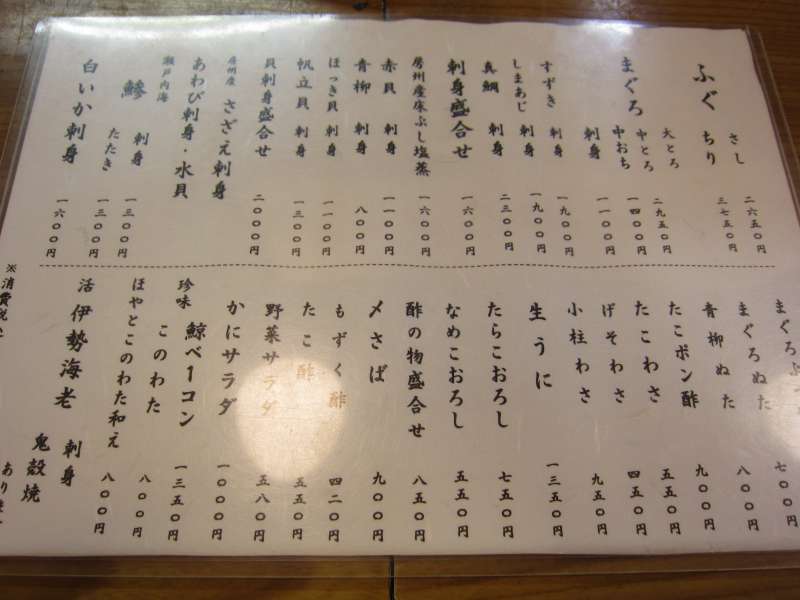 ふぐ さし 二六五〇円
ちり 三七五〇円
まぐろ 大とろ 二九五〇円
中とろ
中おち 一四〇〇円
刺身 一一〇〇円
すずき 刺身 一九〇〇円
しまあじ 刺身 一九〇〇円
真鯛 刺身 二三〇〇円
刺身盛合せ 一六〇〇円
房州産床ぶし塩蒸 一六〇〇円
赤貝 刺身 一一〇〇円
青柳 刺身 八〇〇円
ほっき貝 刺身 一一〇〇円
帆立貝 刺身 一三〇〇円
貝刺身盛合せ 二〇〇〇円
房州産 さざえ刺身
あわび刺身・水貝
瀬戸内海
鯵 刺身 一三〇〇円
たたき 一三〇〇円
白いか刺身 一六〇〇円
まぐろぶ 七〇〇円
まぐろぬた 八〇〇円
青柳ぬた 九〇〇円
たこポン酢 五五〇円
たこわさ 四五〇円
げそわさ 九五〇円
小柱わさ 一三五〇円
生うに
たらこおろし 七五〇円
なめこおろし 五五〇円
酢の物盛合せ 八五〇円
〆さば 九〇〇円
もずく酢 四二〇円
たこ酢 五五〇円
野菜サラダ 五八〇円
かにサラダ 一〇〇〇円
珍味 鯨ベーコン 一三五〇円
このわた 八〇〇円
ほやとこのわた和え 八〇〇円
活 伊勢海老 刺身
鬼殻焼
※消費税
あり